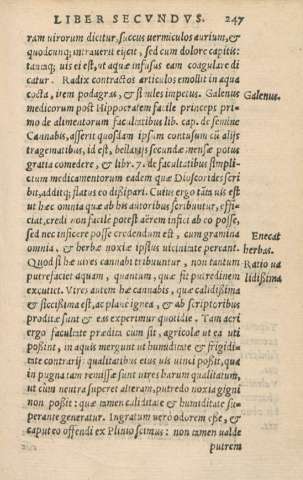 LIBER SECVNDVS. 247
ram uirorum dicitur, succus uermiculos aurium, &
quodcunq; intrauerit eijcit, sed cum dolore capitis:
tantaq; uis ei est, ut aquæ infusus eam coagulare di
catur. Radix contractos articulos emollit in aqua
cocta, item podagras, & similes impetus. Galenus
Galenus.
medicorum post Hippocratem facile princeps pri-
mo de alimentorum facultatibus lib. cap. de semine
Cannabis, asserit quosdam ipsum contusum cū alijs
tragematibus, id est, bellarijs secundæ mensæ potus
gratia comedere, & libr. 7. de facultatibus simpli-
cium medicamentorum eadem quæ Dioscorides scri
bit, additq; flatus eo dissipari. Cuius ergo tam uis est
ut hæc omnia quæ ab his autoribus scribuntur, effi-
ciat, credi non facile potest aërem infici ab eo posse,
sed nec inficere posse credendum est, cum gramina
Enecat
omnia, & herbæ noxiæ ipsius uicinitate pereant.
herbas.
Quod si hæ uires cannabi tribuuntur, non tantum
Ratio ua
putrefaciet aquam, quantum, quæ fit putredinem
lidißima
excutiet. Vires autem hæ cannabis, quæ calidißima
& siccißima est, ac planè ignea, & ab scriptoribus
proditæ sunt & eas experimur quotidie. Tam acri
ergo facultate prædita cum sit, agricolæ ut ea uti
poßint, in aquis mergunt ut humiditate & frigidi-
tate contrarijs qualitatibus eius uis uinci poßit, quæ
in pugna tam remissæ sunt utrẽs harum qualitatum,
ut cum neutra superet alteram, putredo noxia gigni
non poßit: quæ tamen caliditate & humiditate su-
perante generatur. Ingratum uerò odorem esse, &
caput eo offendi ex Plinio scimus: non tamen ualde
putrem